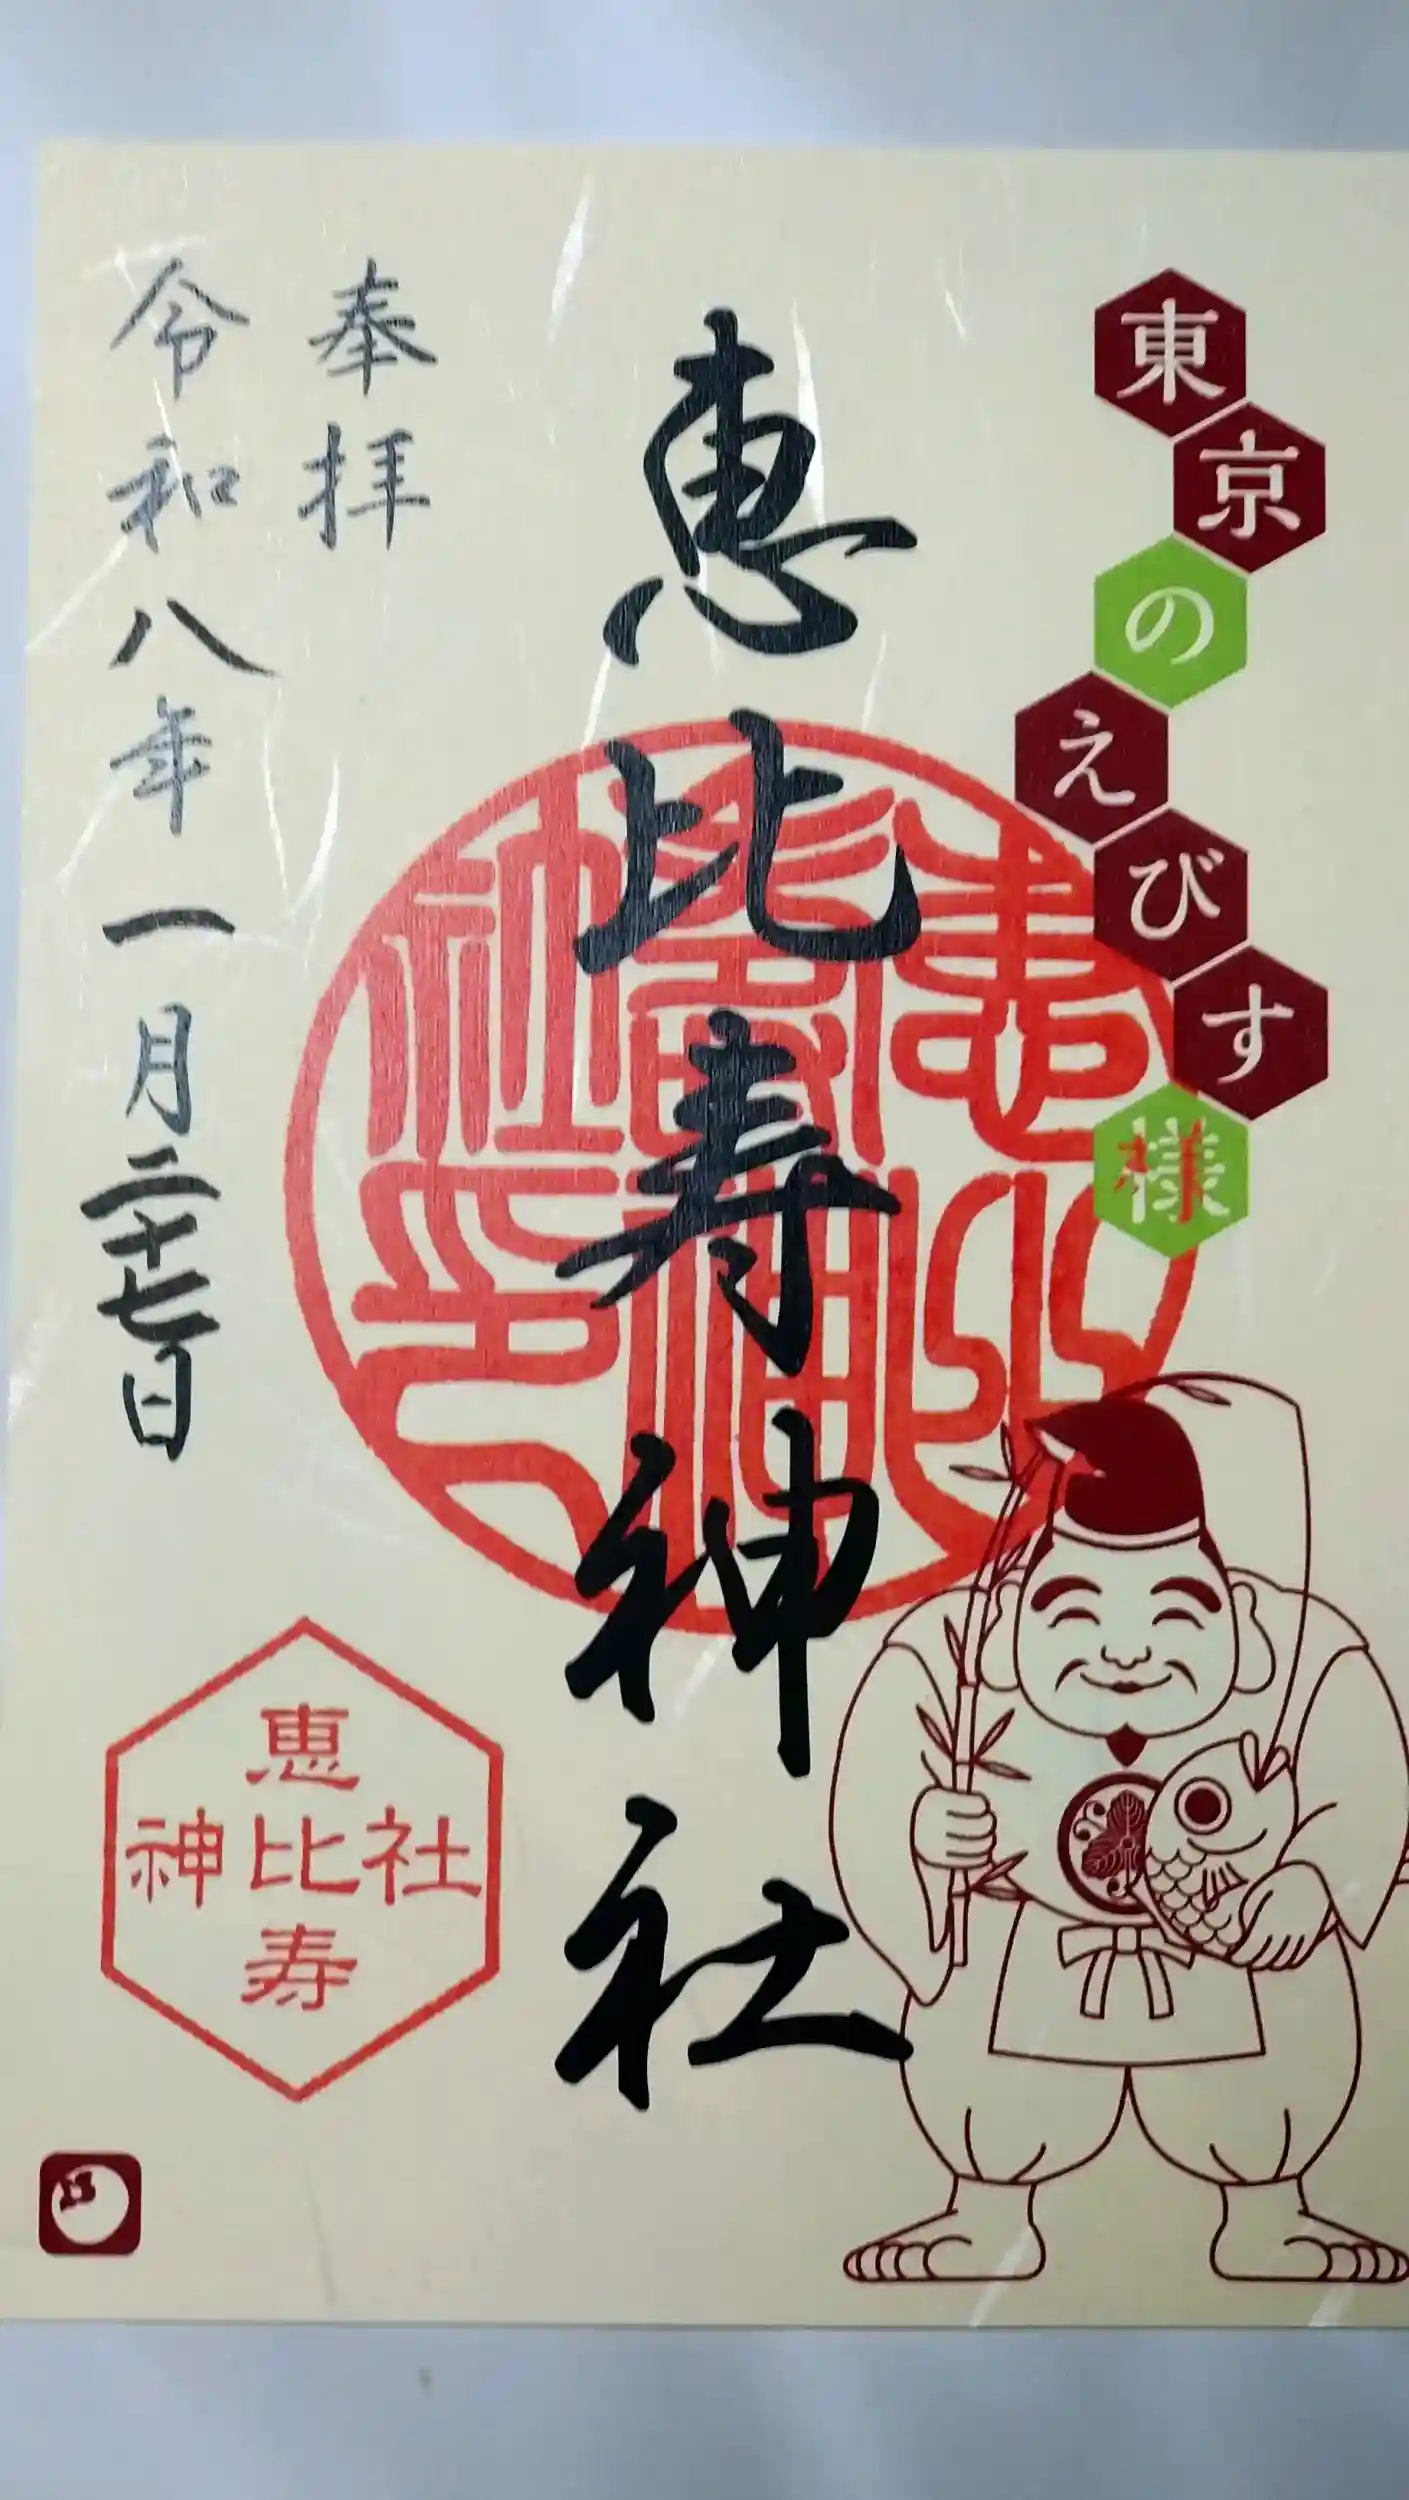 東京のえびす様
恵比寿神社
奉拝
令和八年一月二十七日
恵比寿
神社
恵比寿神社印